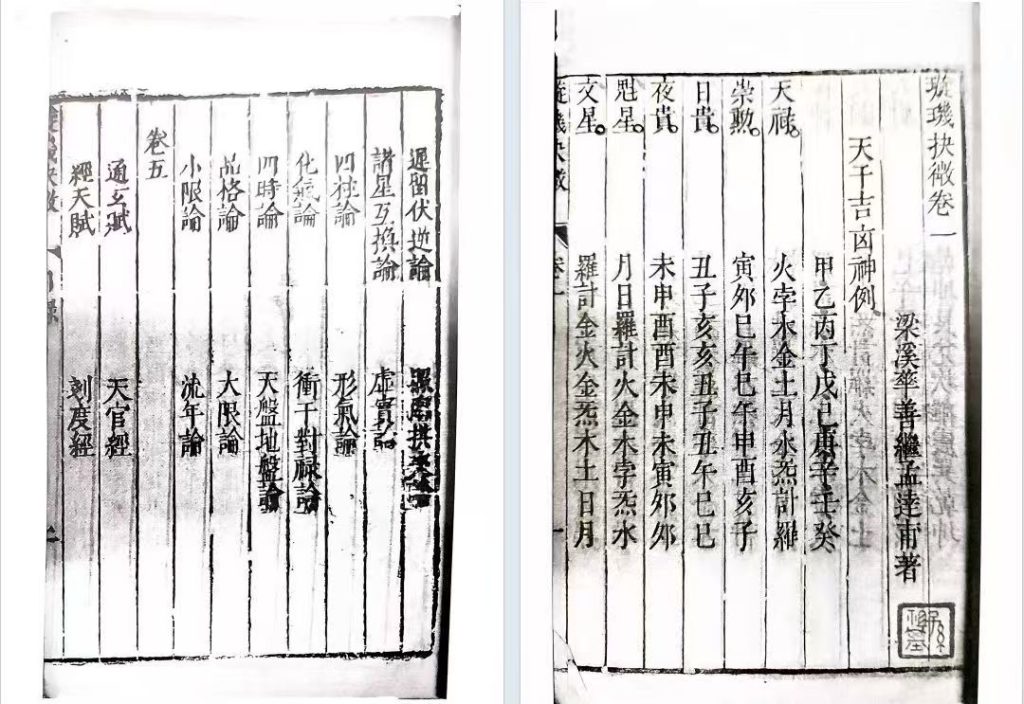 遲留伏逆論
諸星互換論　虛實論
四柱論　形氣論
化氣論　衝干對祿論
四時論　天盤地盤論
品格論　大限論
小限論　流年論
卷五
通玄賦　天官經
經天賦　刻度經
二
璇璣抉微卷一
梁溪華善繼孟達甫著
天干吉凶神例
甲乙丙丁戊己庚辛壬癸
天祿。　火孛木金土月水炁計羅
崇勳。　寅夘巳午巳午申酉亥子
日貴。　丑子亥亥丑子丑午巳巳
夜貴。　未申酉酉未申未寅夘夘
魁星。　月日羅計火金木孛炁水
文星。　羅計金火金炁木土日月